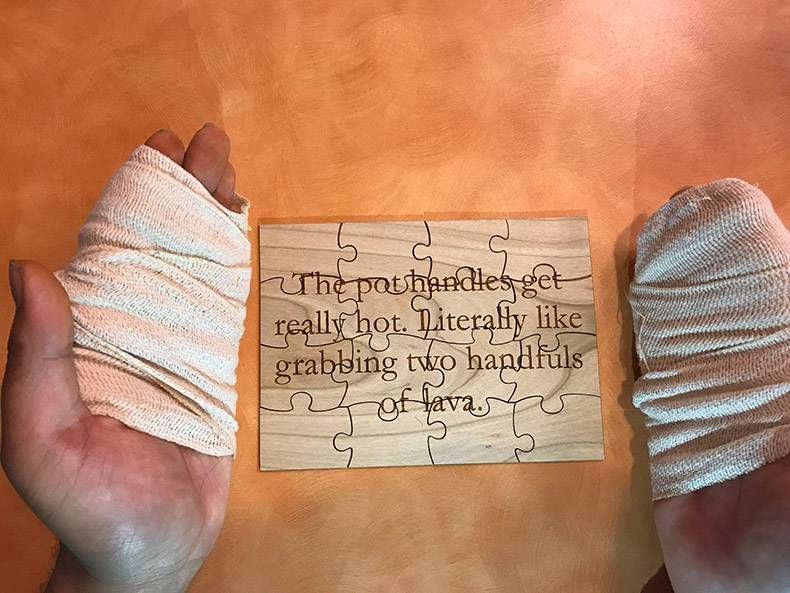 The pot handles get
really hot. Literally like
grabbing two handfuls
of lava.